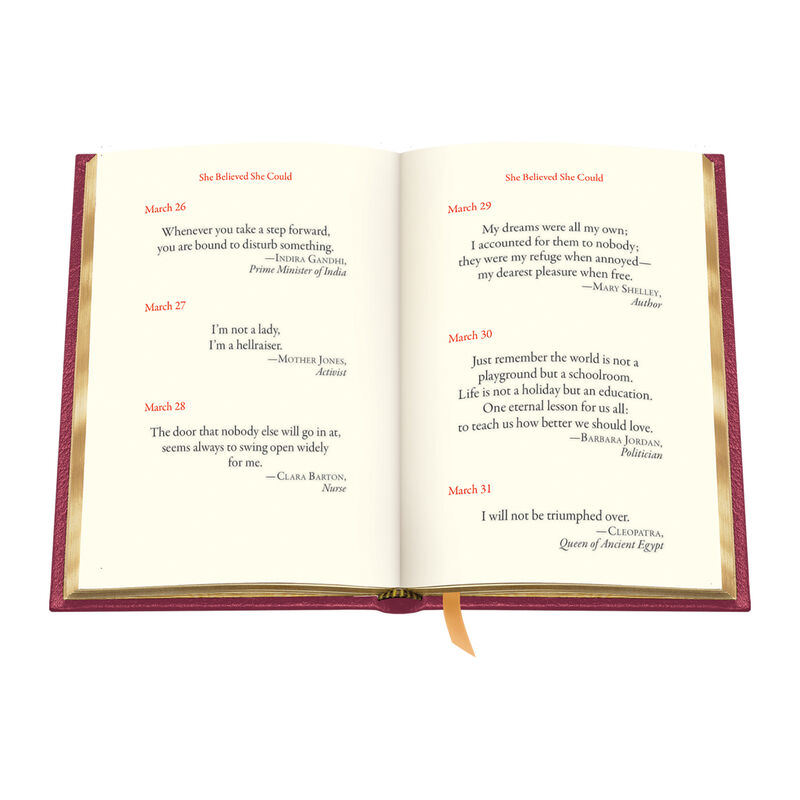 She Believed She Could
March 26
Whenever you take a step forward,
you are bound to disturb something.
—Indira Gandhi,
Prime Minister of India
March 27
I'm not a lady,
I'm a hellraiser.
—Mother Jones,
Activist
March 28
The door that nobody else will go in at,
seems always to swing open widely
for me.
—Clara Barton,
Nurse
She Believed She Could
March 29
My dreams were all my own;
I accounted for them to nobody;
they were my refuge when annoyed—
my dearest pleasure when free.
—Mary Shelley,
Author
March 30
Just remember the world is not a
playground but a schoolroom.
Life is not a holiday but an education.
One eternal lesson for us all:
to teach us how better we should love.
—Barbara Jordan,
Politician
March 31
I will not be triumphed over.
—Cleopatra,
Queen of Ancient Egypt